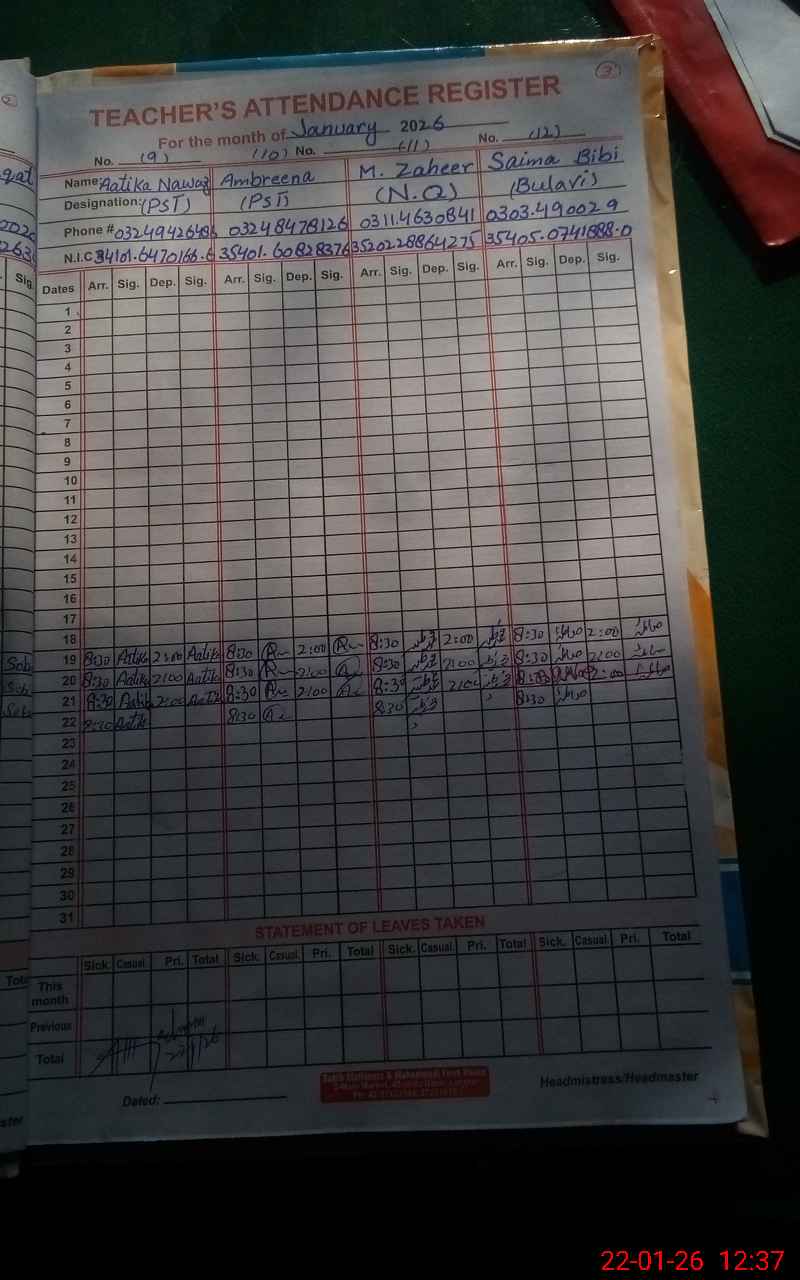 3
TEACHER'S ATTENDANCE REGISTER
For the month of January 2026
No. (9) (10) No. (11) No. (12)
Name: Aatika Nawaz Ambreena M. Zaheer Saima Bibi
Designation: (PST) (PST) (N.Q) (Bulavi)
Phone # 0324942648 0324 8478126 0311.4630841 0303.490029
N.I.C 34101.6470166.6 35401.60828376 3520228864275 35405.0741888.0
Dates Arr. Sig. Dep. Sig. Arr. Sig. Dep. Sig. Arr. Sig. Dep. Sig. Arr. Sig. Dep. Sig.
1
2
3
4
5
6
7
8
9
10
11
12
13
14
15
16
17
18
19 8:30 Aatika 2:00 Aatika 8:30 2:00 8:30 2:00 8:30 2:00
20 8:30 Aatika 2:00 Aatika 8:30 2:00 8:30 2:00 8:30 2:00
21 8:30 Aatika 2:00 Aatika 8:30 2:00 8:30 2:00 2:00
22 8:30 Aatika 8:30 8:30 8:30
23
24
25
26
27
28
29
30
31
STATEMENT OF LEAVES TAKEN
Sick. Casual. Pri. Total Sick. Casual. Pri. Total Sick. Casual. Pri. Total Sick. Casual. Pri. Total
This month
Previous
Total
Dated:
Headmistress/Headmaster
22-01-26 12:37